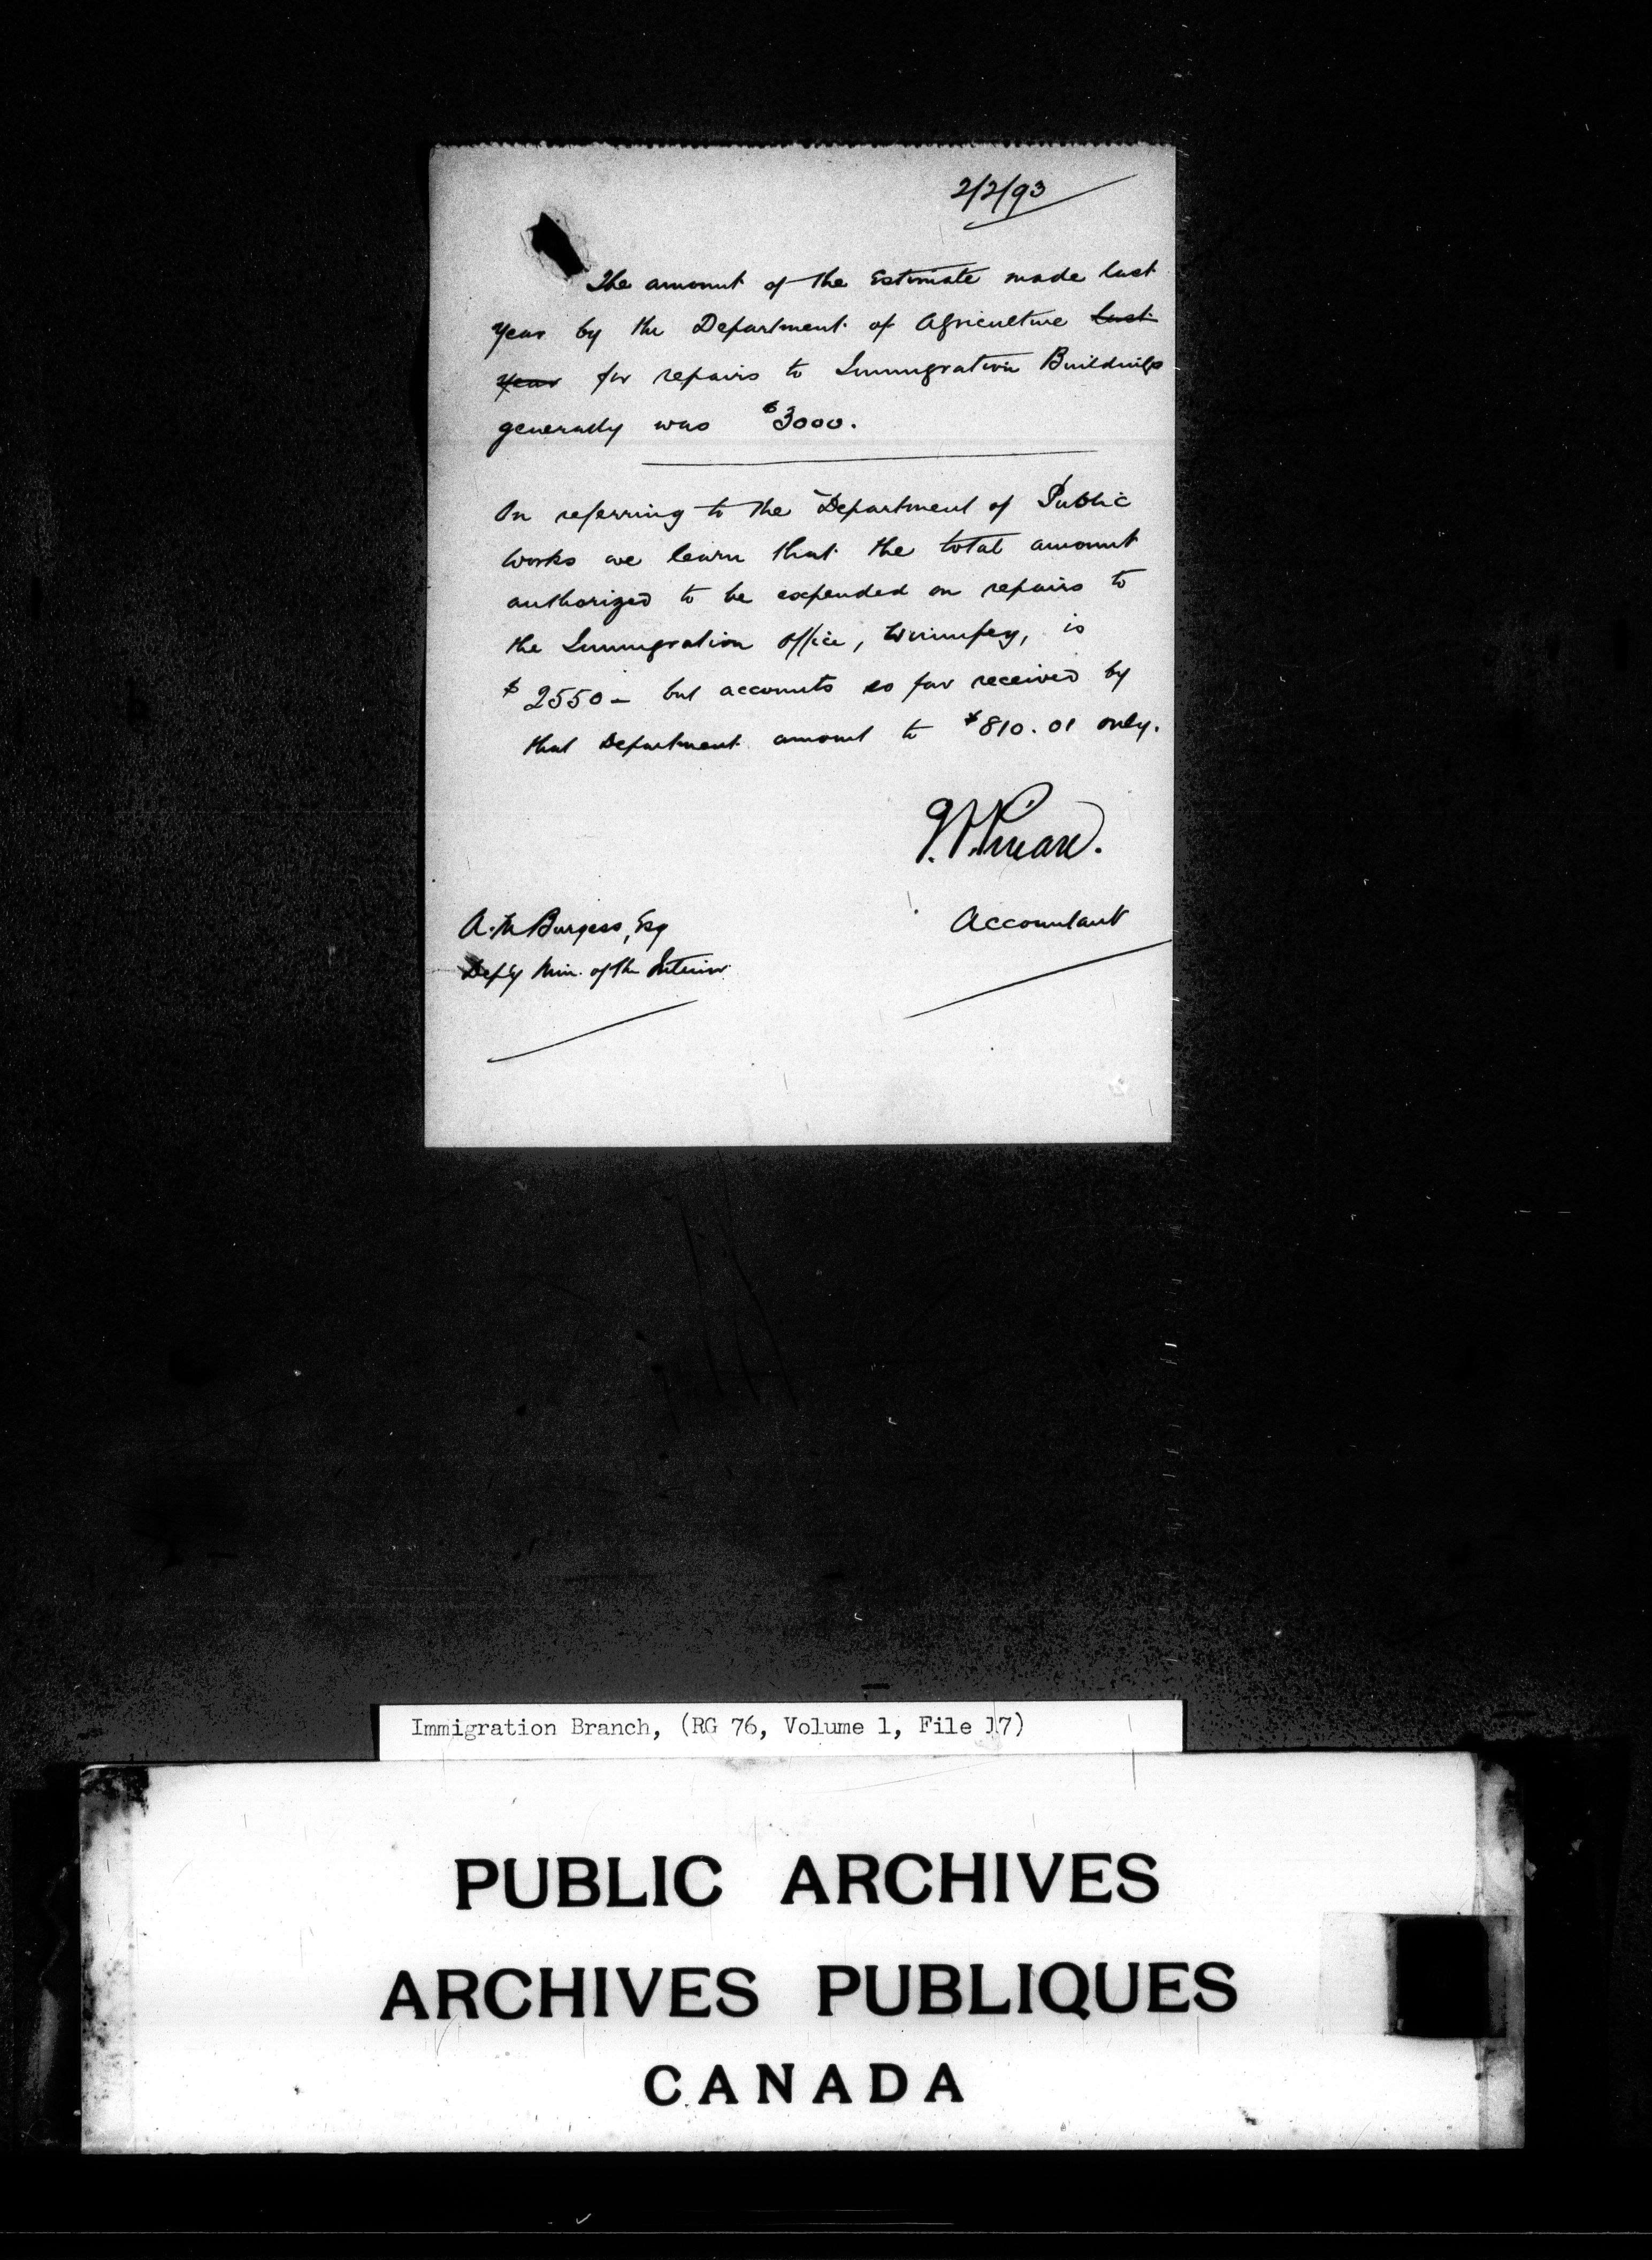 2/2/93
The amount of the Estimate made last
year by the Department of Agriculture last
year for repairs to Immigration Buildings
generally was $3000.
On referring to the Department of Public
Works we learn that the total amount
authorized to be expended on repairs to
the Immigration Office, Winnipeg, is
$2550— but accounts so far received by
that Department amount to $810.01 only.
Accountant
A. M. Burgess, Esq
Depy Min. of the Interior
Immigration Branch, (RG 76, Volume 1, File 17)
PUBLIC ARCHIVES
ARCHIVES PUBLIQUES
CANADA